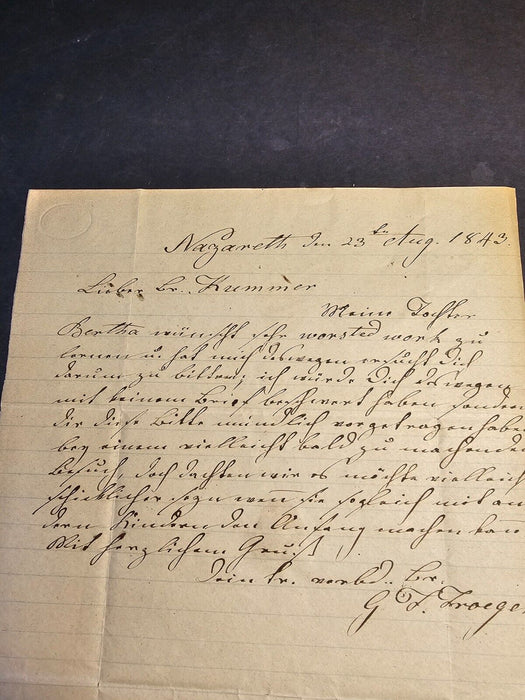 Nazareth den 23ten Aug. 1843
Lieber Br. Kummer
Meine Tochter
Bertha wünscht sehr worsted work zu
lernen u. hat mich deswegen ersucht Dich
darum zu bitten; ich würde Dich deswegen
mit keinem Brief beschwert haben sondern
dir diese Bitte mündlich vorgetragen haben
bey einem vielleicht bald zu machenden
Besuch, doch dachten wir es möchte vielleicht
schicklicher seyn wenn sie sogleich mit an
dern Kindern den Anfang machen kann
Mit herzlichem Gruß
Dein tr. verbd. Br.
G F. Troeger